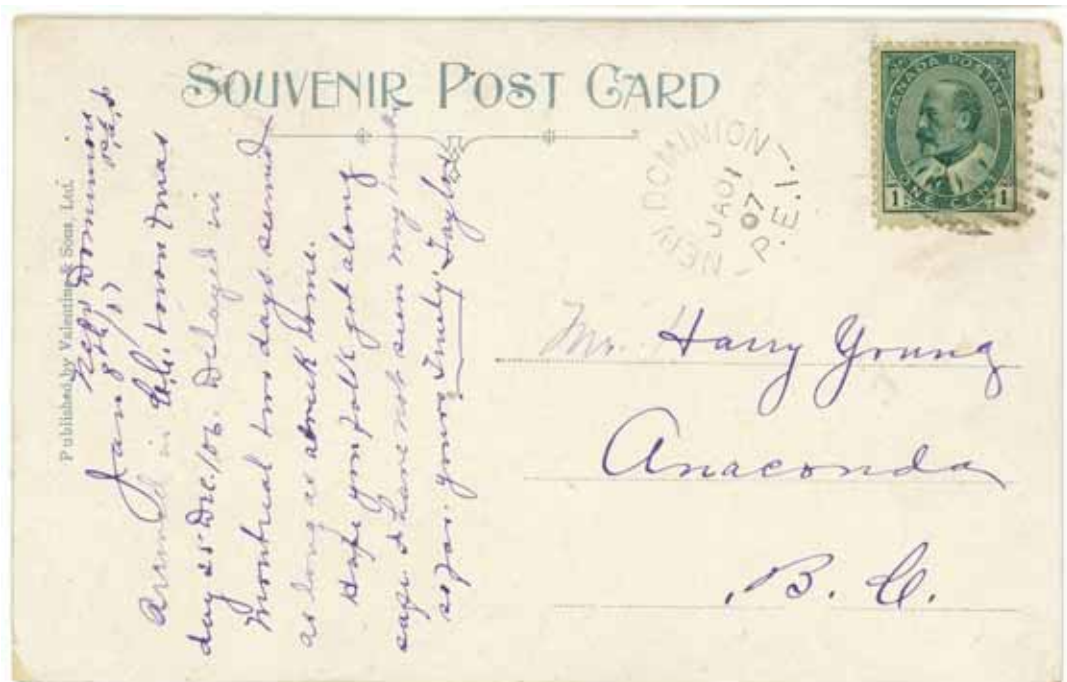 SOUVENIR POST CARD
CANADA POSTAGE
1 ONE CENT 1
NEW DOMINION
JA 01
07
P.E.I.
Published by Valentine & Sons, Ltd.
New Dominion
P.E.I
Jan 8th/07
Arrived in Ch. town Xmas
day 25 Dec./06. Delayed in
Montreal two days seemed
as long as a week home.
Hope you folk got along
I have not seen my
so far. yours Truly Taylor
Mr. Harry Young
Anaconda
B. C.